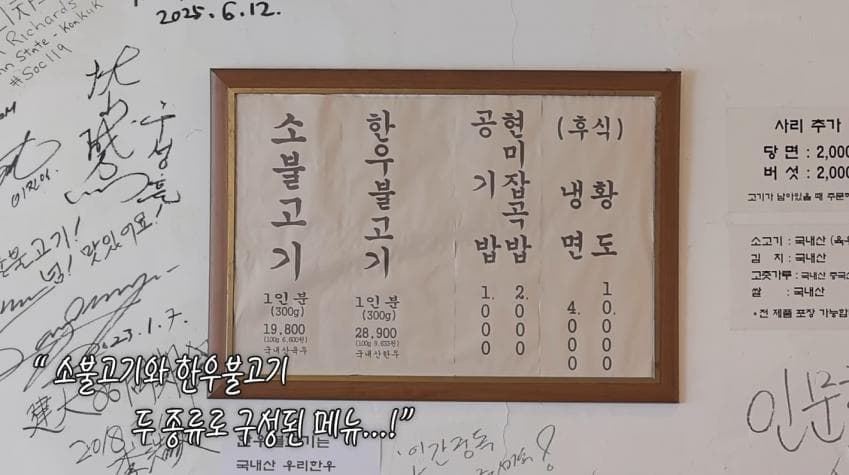 Richards
#Soc119
2025. 6. 12.
우성흠
소불고기
1인분
(300g)
19,800
(100g 6,600원)
국내산육우
한우불고기
1인분
(300g)
28,900
(100g 9,633원)
국내산한우
공기밥
1.000
현미잡곡밥
2.000
(후식)
냉면
4.000
황도
10.000
사리 추가
당면 : 2,000
버섯 : 2,000
고기가 남아있을 때 주문
소고기 : 국내산 (육우
김 치 : 국내산
고춧가루 : 국내산 중국산
쌀 : 국내산
*전 제품 포장 가능합
불고기!
맛있어요!
2023. 1. 7.
建大
2018
인문
한우불고기는
국내산 우리한우
“ 소불고기와 한우불고기
두 종류로 구성된 메뉴...!”